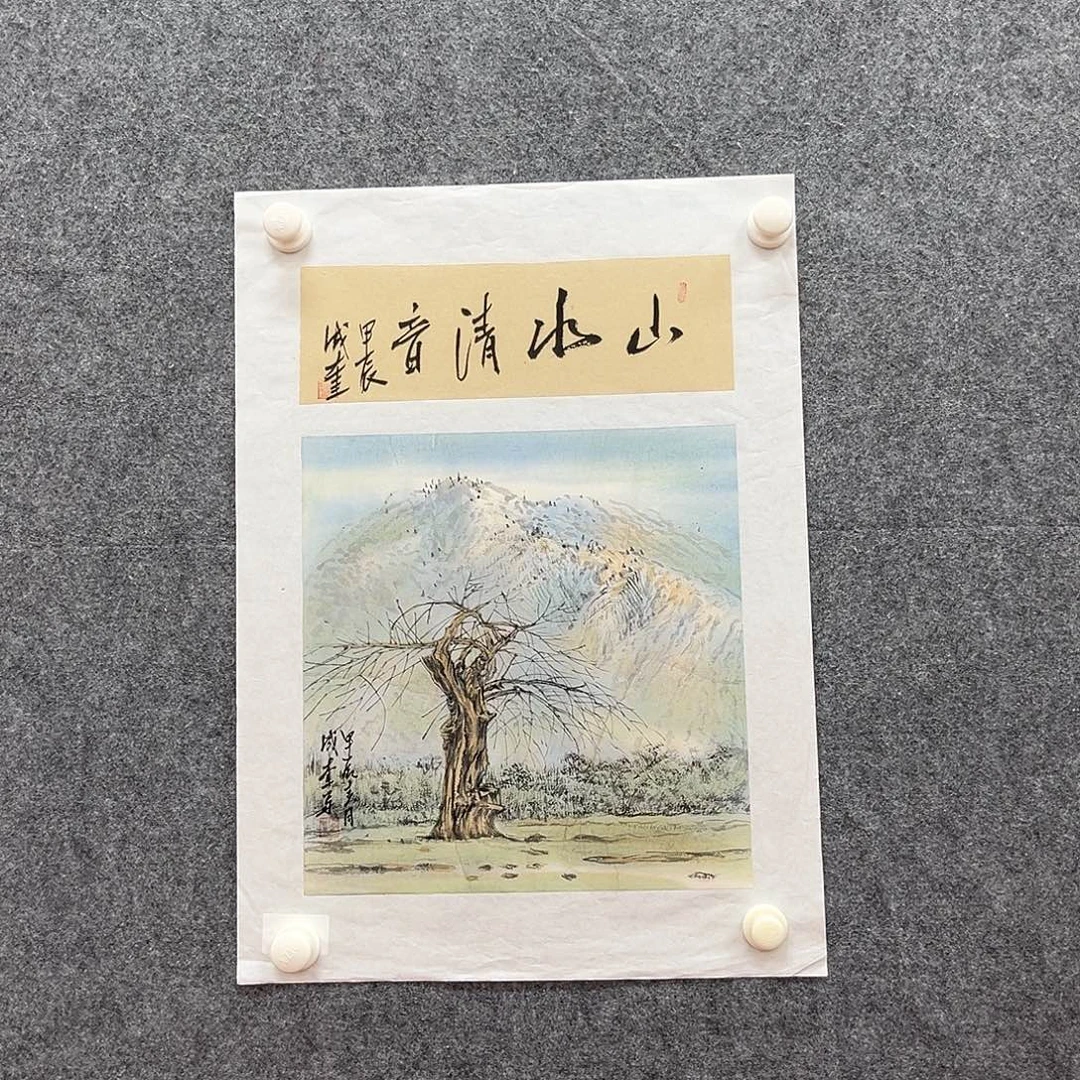 山水清音
甲辰
成奎
甲辰五月
成奎写